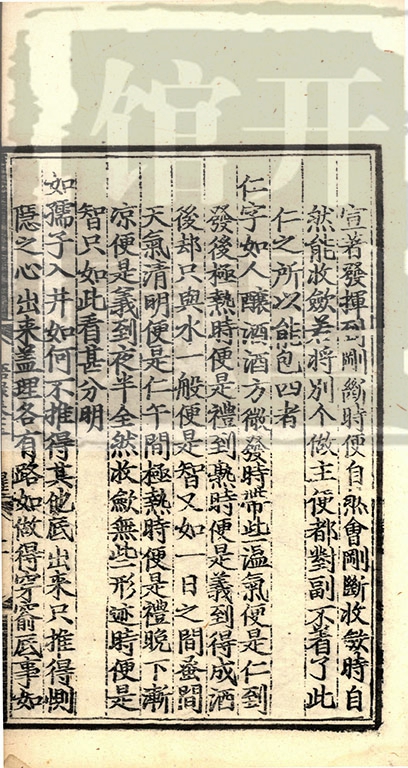 宣著發揮到剛斷時便自然會剛斷收斂時自
然能收斂若將別个做主便都對副不着了此
仁之所以能包四者
仁字如人釀酒酒方微發時帶些溫氣便是仁到
發後極熱時便是禮到熟時便是義到得成酒
後却只與水一般便是智又如一日之間蚤間
天氣清明便是仁午間極熱時便是禮晚下漸
凉便是義到夜半全然收斂無些形迹時便是
智只如此看甚分明
如孺子入井如何不推得其他底出來只推得惻
隱之心出来盖理各有路如做得穿窬底事如
开
馆